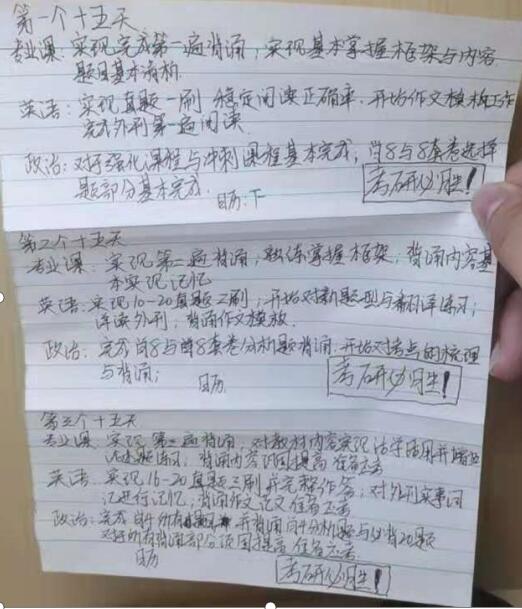 第一个十五天
专业课：实现完成第一遍背诵，实现基本掌握框架与内容
题目基本消化.
英语：实现真题一刷 稳定阅读正确率，开始作文模板工作
完成外刊第一遍阅读.
政治：对于强化课程与冲刺课程基本完成，肖8与8套卷选择
题部分基本完成.
考研必胜！
第二个十五天
专业课：实现第二遍背诵，熟练掌握框架，背诵内容基
本实现记忆
英语：实现10-20真题二刷；开始对新题型与翻译练习；
泽读外刊，背诵作文模板.
政治：完成肖8与8套卷分析题背诵，开始对考点的梳理
与背诵；
考研必胜！
第三个十五天
专业课：实现第三遍背诵，对教材内容实现活学活用并
题练习，背诵内容巩固提高
英语：实现16-20真题三刷并完整作答；对外刊实事词
汇进行记忆，背诵作文范文
政治：完成肖4所有 并背诵肖4分析题与必背20题
对于所有背诵部分巩固提高
考研必胜！